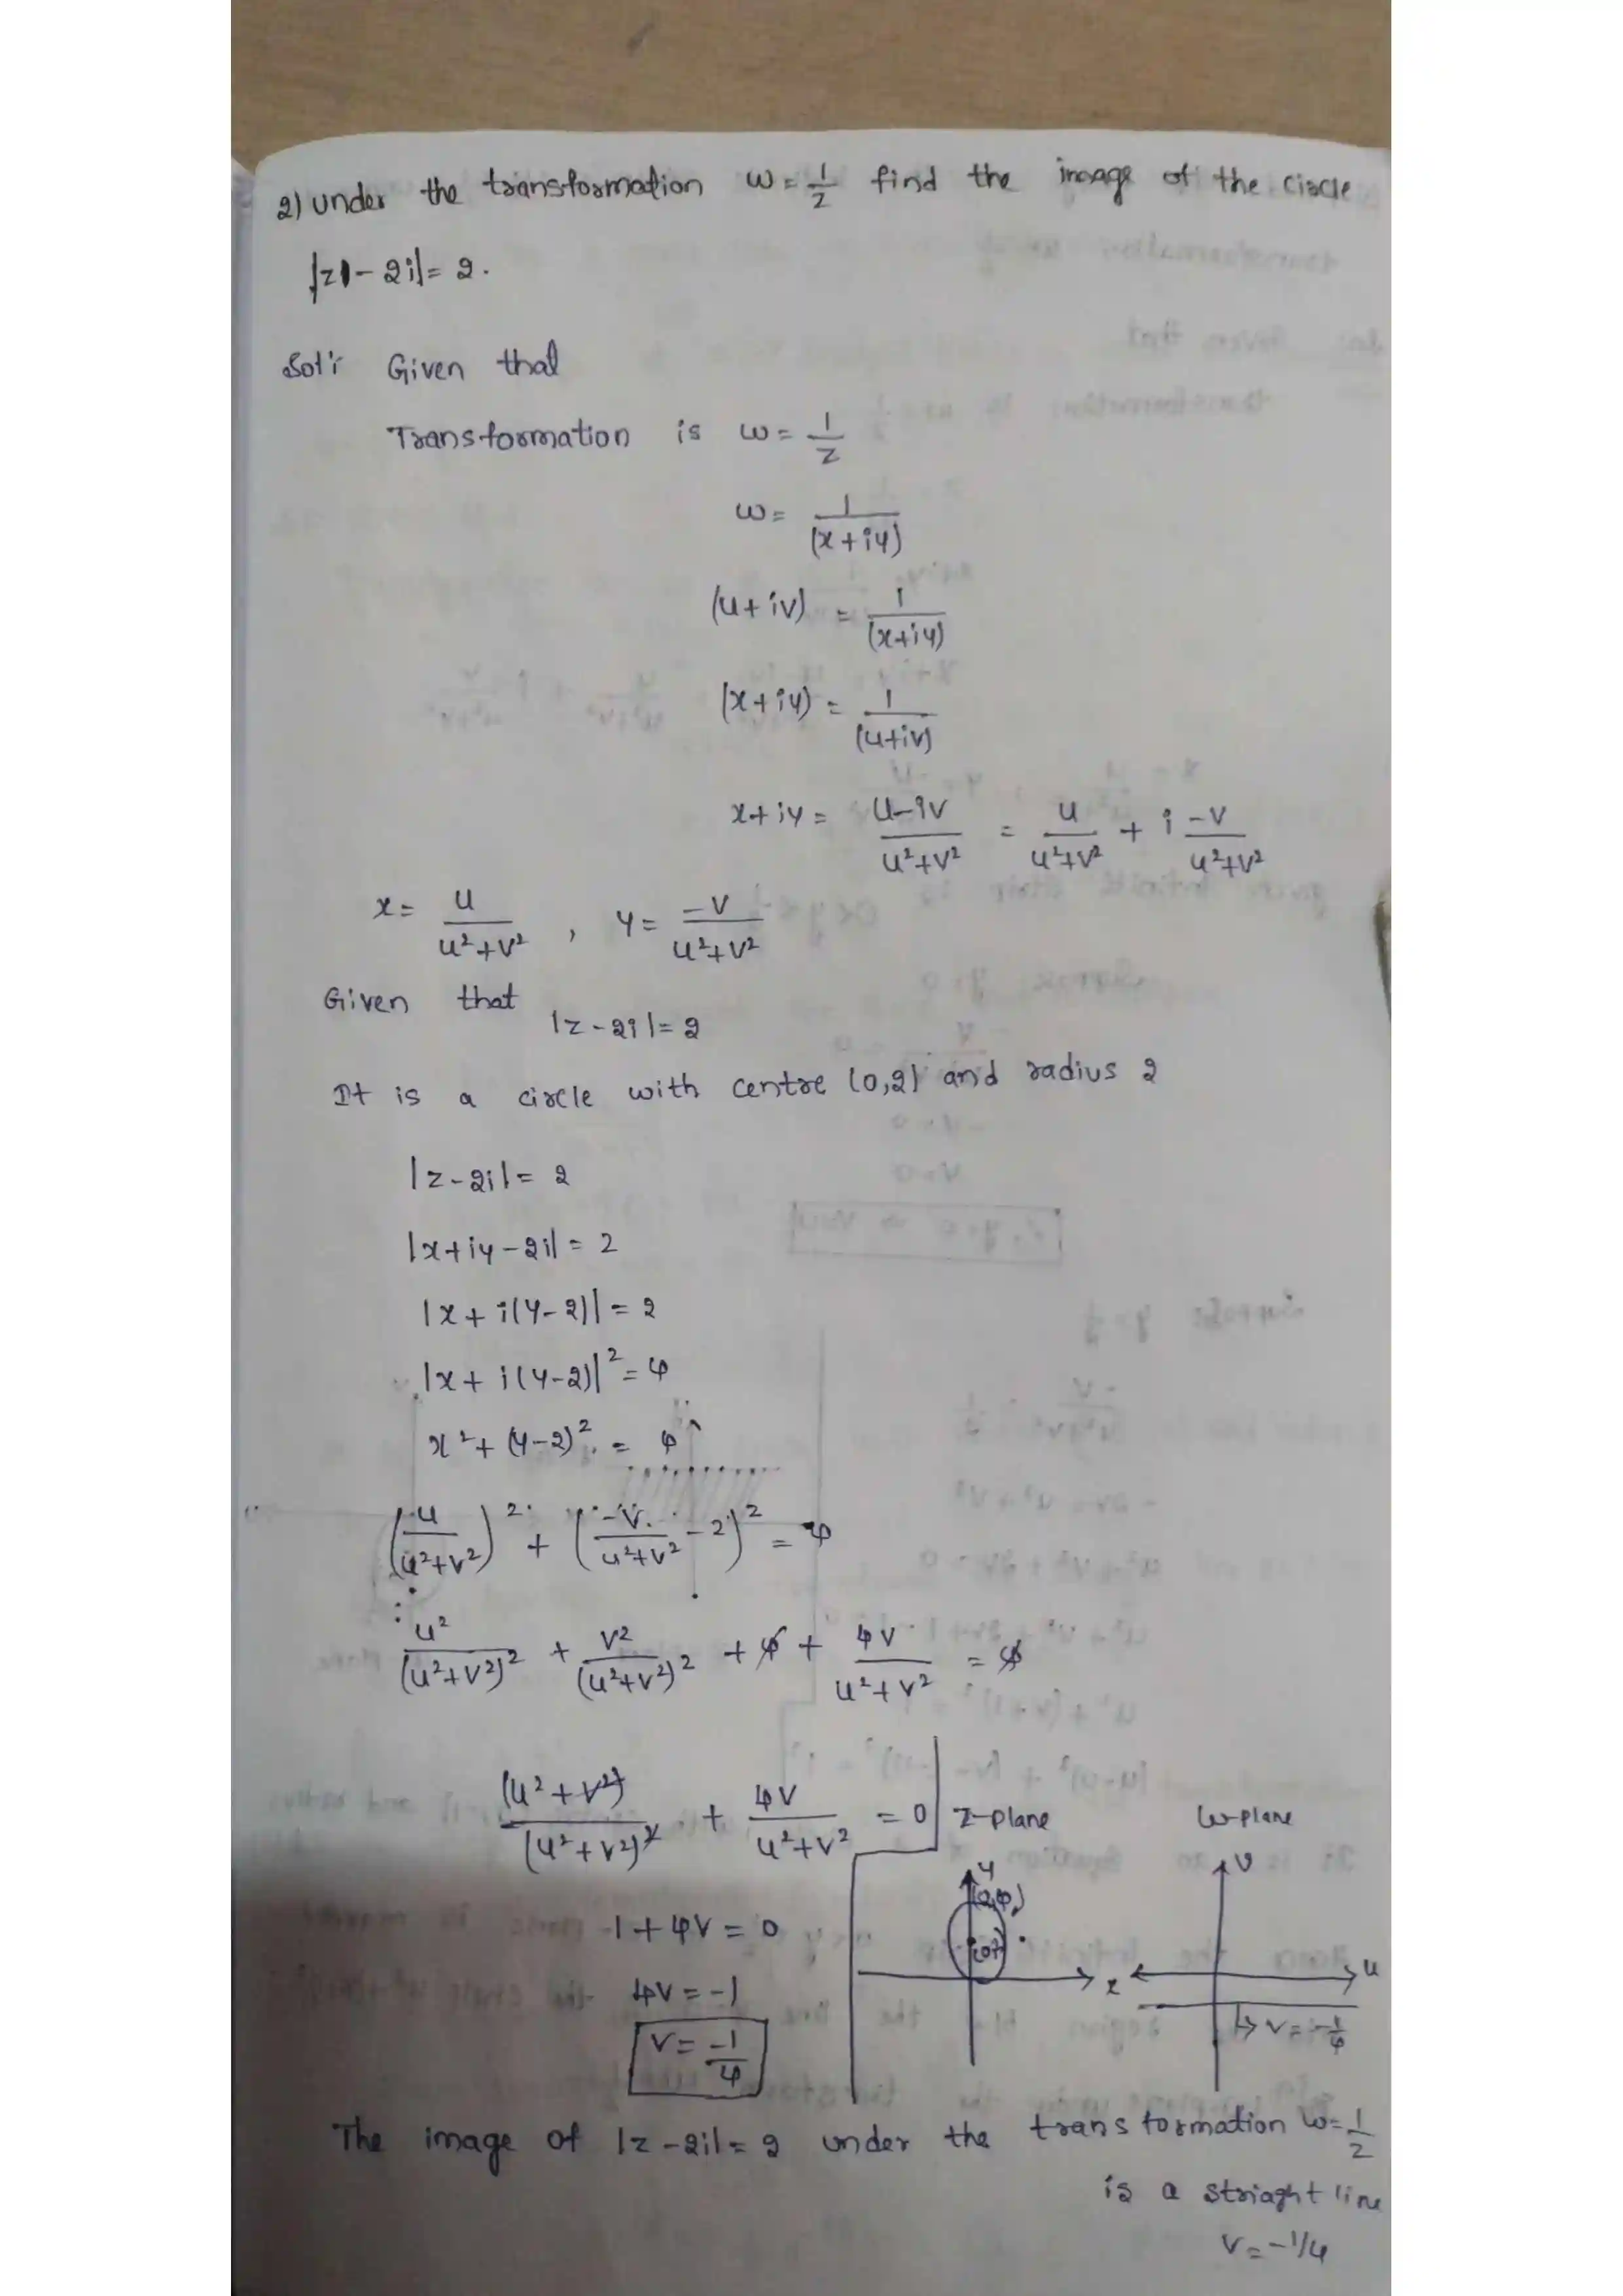 2) under the transformation w = 1/z find the image of the circle
|z - 2i| = 2.
Sol: Given that
Transformation is w = 1/z
w = 1/(x+iy)
(u+iv) = 1/(x+iy)
(x+iy) = 1/(u+iv)
x+iy = (u-iv)/(u²+v²) = u/(u²+v²) + i -v/(u²+v²)
x = u/(u²+v²) , y = -v/(u²+v²)
Given that
|z-2i| = 2
It is a circle with centre (0,2) and radius 2
|z-2i| = 2
|x+iy-2i| = 2
|x+i(y-2)| = 2
|x+i(y-2)|² = 4
x² + (y-2)² = 4
(u/(u²+v²))² + (-v/(u²+v²) - 2)² = 4
u²/(u²+v²)² + v²/(u²+v²)² + 4 + 4v/(u²+v²) = 4
(u²+v²)/(u²+v²)² + 4v/(u²+v²) = 0
1+4v = 0
4v = -1
v = -1/4
z-plane
y
x
w-plane
v
u
v = -1/4
The image of |z-2i| = 2 under the transformation w = 1/z
is a striaght line
v = -1/4